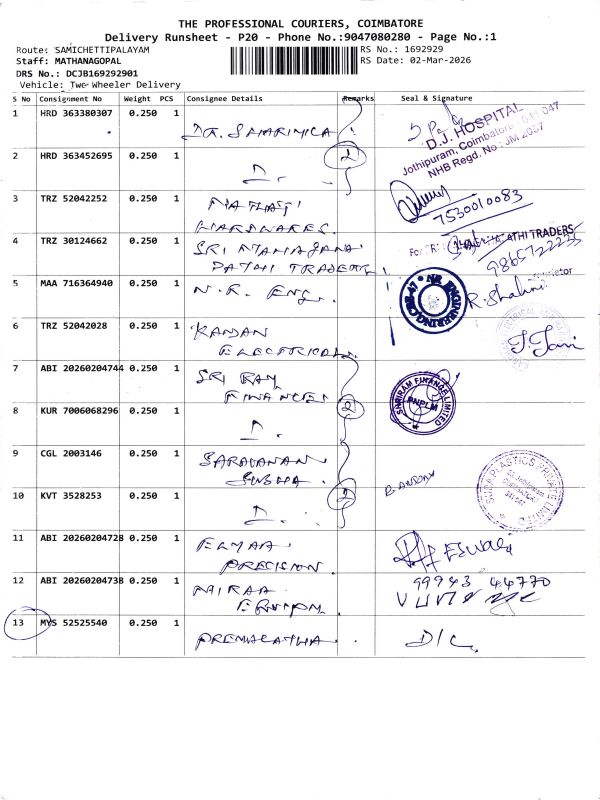 THE PROFESSIONAL COURIERS, COIMBATORE
Delivery Runsheet - P20 - Phone No.:9047080280 - Page No.:1
Route: SAMICHETTIPALAYAM
RS No.: 1692929
Staff: MATHANAGOPAL
RS Date: 02-Mar-2026
DRS No.: DCJB169292901
Vehicle: Two Wheeler Delivery
S No Consignment No Weight PCS Consignee Details Remarks Seal & Signature
1 HRD 363380307 0.250 1
D.J. HOSPITAL
Jothipuram, Coimbatore - 641 047
NHB Regd. No : JM 2057
2 HRD 363452695 0.250 1 D. 2
3 TRZ 52042252 0.250 1
HARDWARES.
7530010083
4 TRZ 30124662 0.250 1 SRI MAHAGANA
PATHI TRADERS
5 MAA 716364940 0.250 1 N.R. ENG.
R. Shalini
6 TRZ 52042028 0.250 1 KANDAN
ELECTRICAL.
7 ABI 20260204744 0.250 1 SRI RAM
FINANCE
2
SHRIRAM FINANCE LIMITED
PNPLM
8 KUR 7006068296 0.250 1 D.
9 CGL 2003146 0.250 1 SARAVANAN
SUBHA.
10 KVT 3528253 0.250 1 D. 2
11 ABI 20260204728 0.250 1
PRECISION.
ESWARI
12 ABI 20260204738 0.250 1
99943 44770
13 MYS 52525540 0.250 1 PREMALATHA D/C